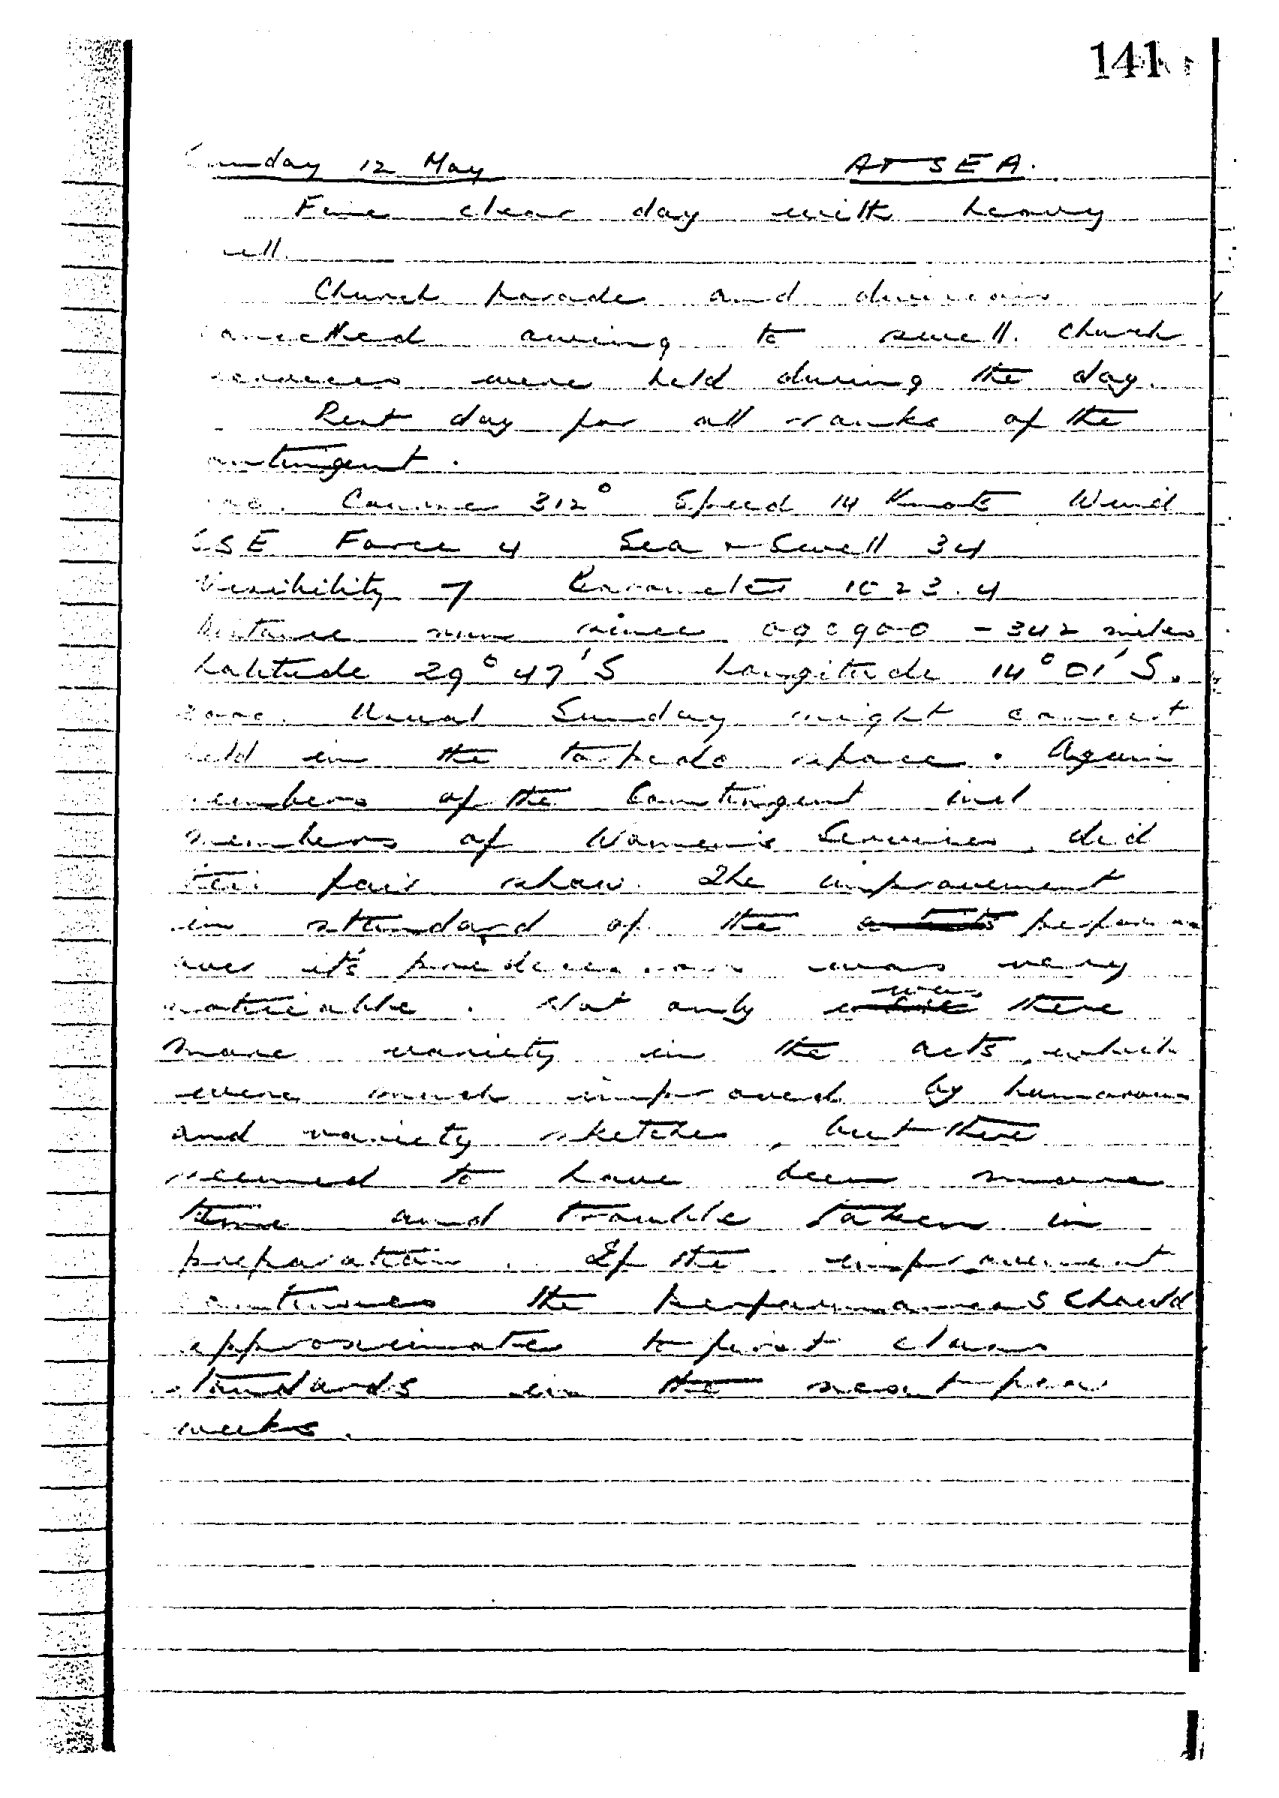 141
Sunday 12 May AT SEA.
Fine clear day with heavy
swell.
Church parade and divisions
cancelled owing to swell. Church
services were held during the day.
Rest day for all ranks of the
contingent.
Course 312° Speed 14 Knots Wind
SSE Force 4 Sea & Swell 34
Visibility 7 Barometer 1023.4
Distance run since 090900 - 342 miles
Latitude 29° 47' S Longitude 14° 01' S.
2000. Usual Sunday night concert
held in the torpedo space. Again
members of the Contingent incl
members of Women's Services did
their fair share. The improvement
in standard of the
over it's predecessor was very
noticeable. Not only was there
more variety in the acts, which
were much improved by humorous
and variety sketches, but there
seemed to have been more
time and trouble taken in
preparation. If the improvement
continues the performances should
approximate to first class
standards in the next few
weeks.